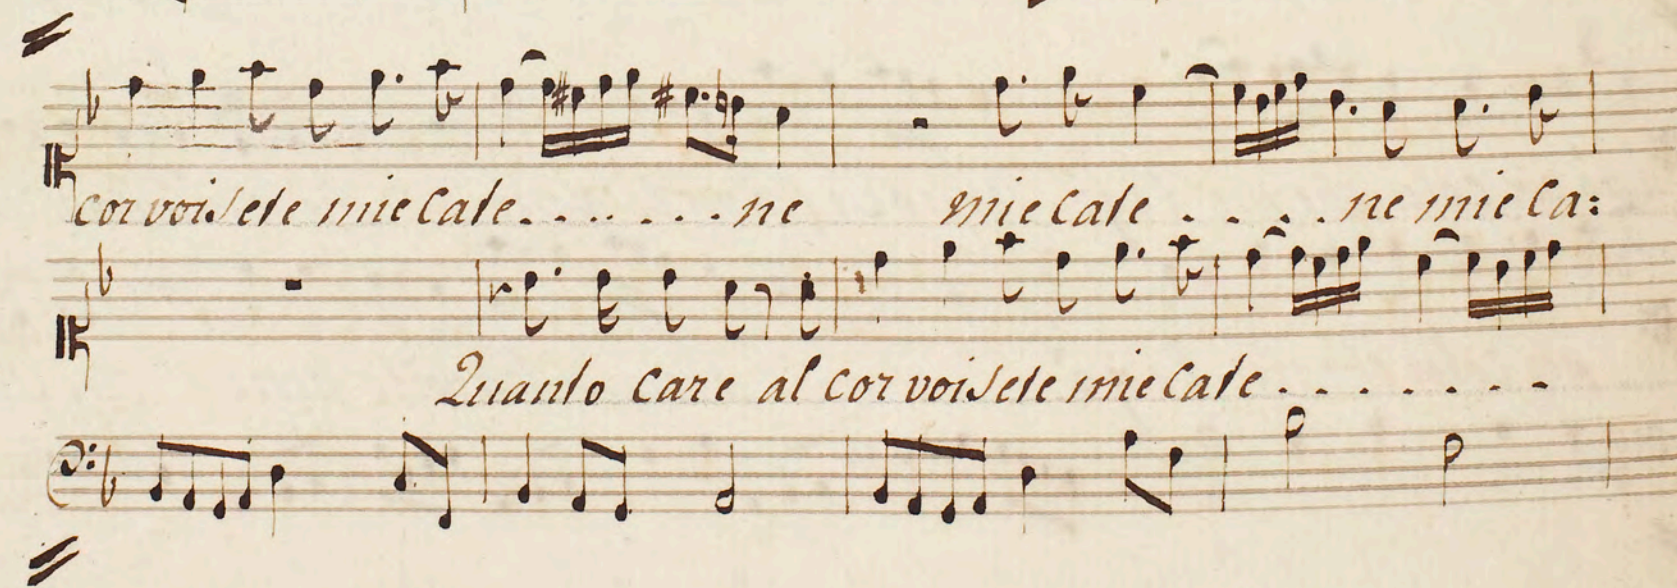 cor voi sete mie Cate. . . . . . . . ne mie Cate . . . . ne mie Ca:
Quanto Care al cor voi sete mie Cate . . . . . . . .